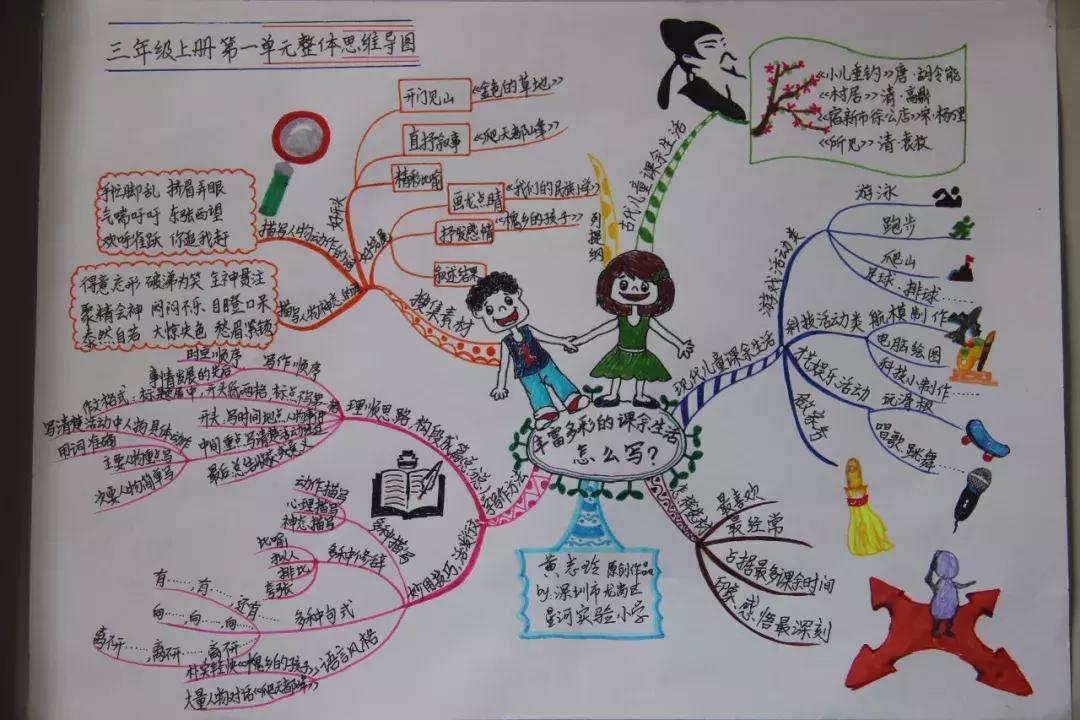 三年级上册第一单元整体思维导图
开门见山
《金色的草地》
直抒叙事
《爬天都峰》
精彩比喻
画龙点睛
《我们的民族小学》
抒发感情
《槐乡的孩子》
叙述结果
好开头
好结尾
手忙脚乱 挤眉弄眼
气喘吁吁 东张西望
欢呼雀跃 你追我赶
描写人物动作的词
得意忘形 破涕为笑 全神贯注
聚精会神 闷闷不乐 目瞪口呆
泰然自若 大惊失色 愁眉紧锁
描写人物神态的词
搜集素材
列提纲
古代儿童课余生活
《小儿垂钓》唐·胡令能
《村居》清·高鼎
《宿新市徐公店》宋·杨万里
《所见》清·袁枚
现代儿童课余生活
游戏活动类
游泳
跑步
爬山
足球、排球……
科技活动类
航模制作
电脑绘图
科技小制作
才艺娱乐活动
玩滑板
唱歌、跳舞……
做家务
丰富多彩的课余生活
怎么写？
最喜欢
最经常
占据最多课余时间
印象、感悟最深刻
黄志玲 原创作品
by:深圳市龙岗区
星河实验小学
写作方法
理顺思路，构段成篇
写作顺序
时空顺序
事情发展的先后
作文格式：标题居中，开头低两格，标点
开头：写时间地点人物事件
中间重点写清楚活动过程
写清楚活动中人物具体动作
用词准确
主要人物重点写
次要人物简单写
妙用技巧，活发行文
多种描写
动作描写
心理描写
神态描写
多种修辞
比喻
拟人
排比
夸张
多种句式
有……，有……，还有……
向……，向……，向……
离研……，离研……，离研……
语言风格
朴实轻快《槐乡的孩子》
大量人物对话《爬天都峰》